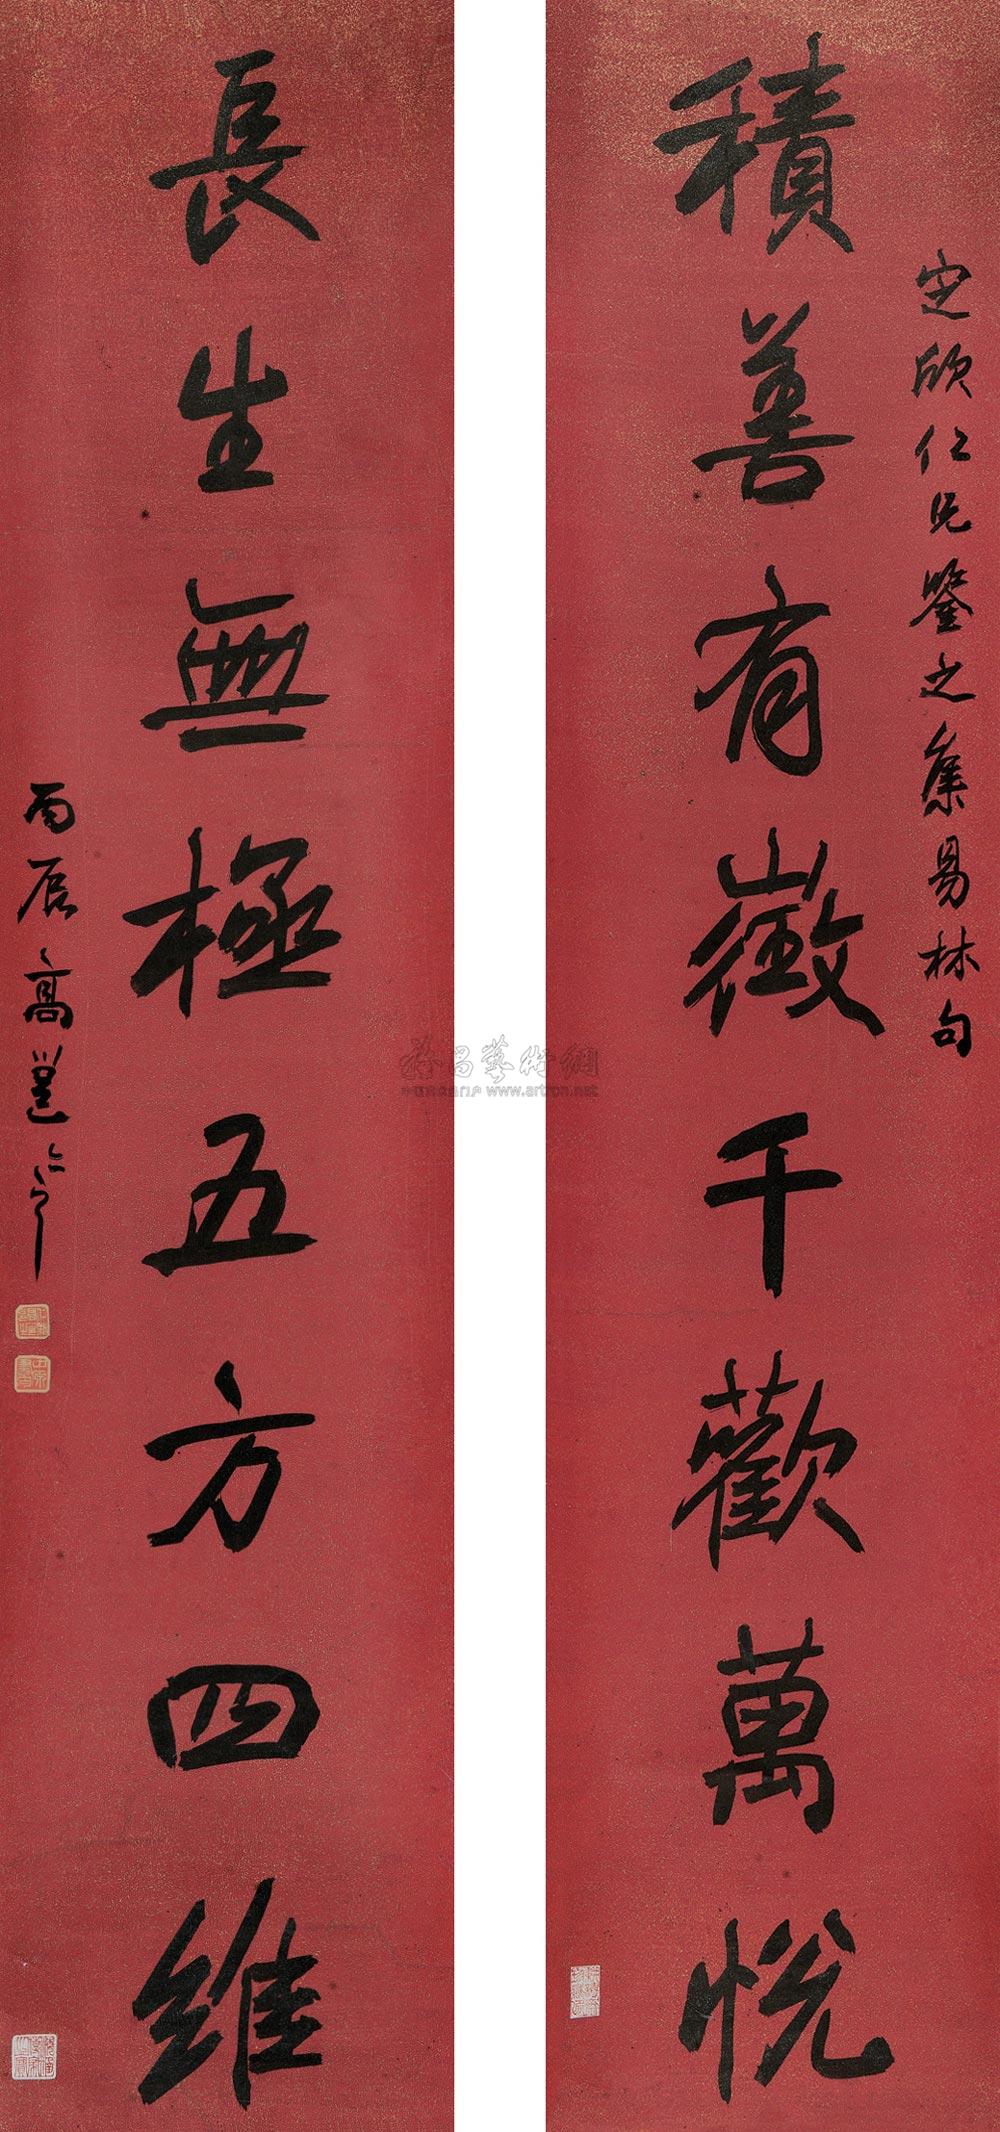 積善有徵千歡萬悅
定欣仁兄鑒之集易林句
長生無極五方四維
丙辰高邕
雅昌藝術網
www.artron.net